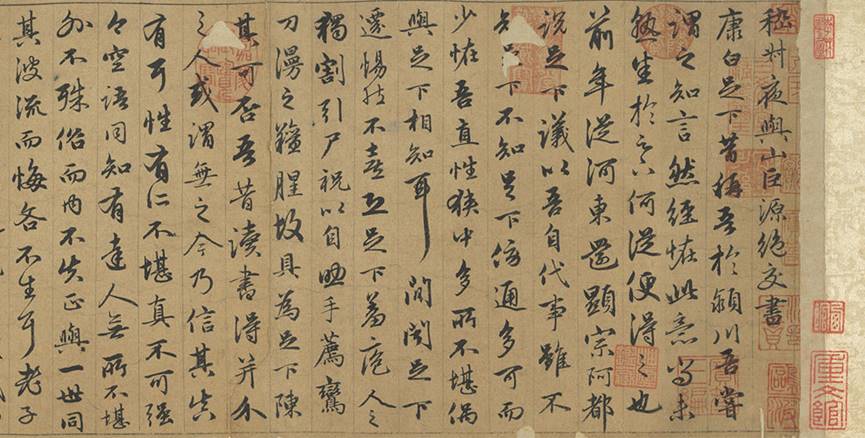 嵇叔夜與山巨源絕交書
康白足下昔稱吾於潁川吾嘗
謂之知言然經怪此意尚未
熟悉於足下何從便得之也
前年從河東還顯宗阿都
說足下議以吾自代事雖不
知足下不知足下傍通多可而
少怪吾直性狹中多所不堪偶
與足下相知耳間聞足下
遷惕然不喜恐足下羞庖人之
獨割引尸祝以自助手薦鸞
刀漫之羶腥故具為足下陳
其可否吾昔讀書得并介
之人或謂無之今乃信其真
有耳性有仁不堪真不可強
今空語同知有達人無所不堪
外不殊俗而內不失正與一世同
其波流而悔吝不生耳老子